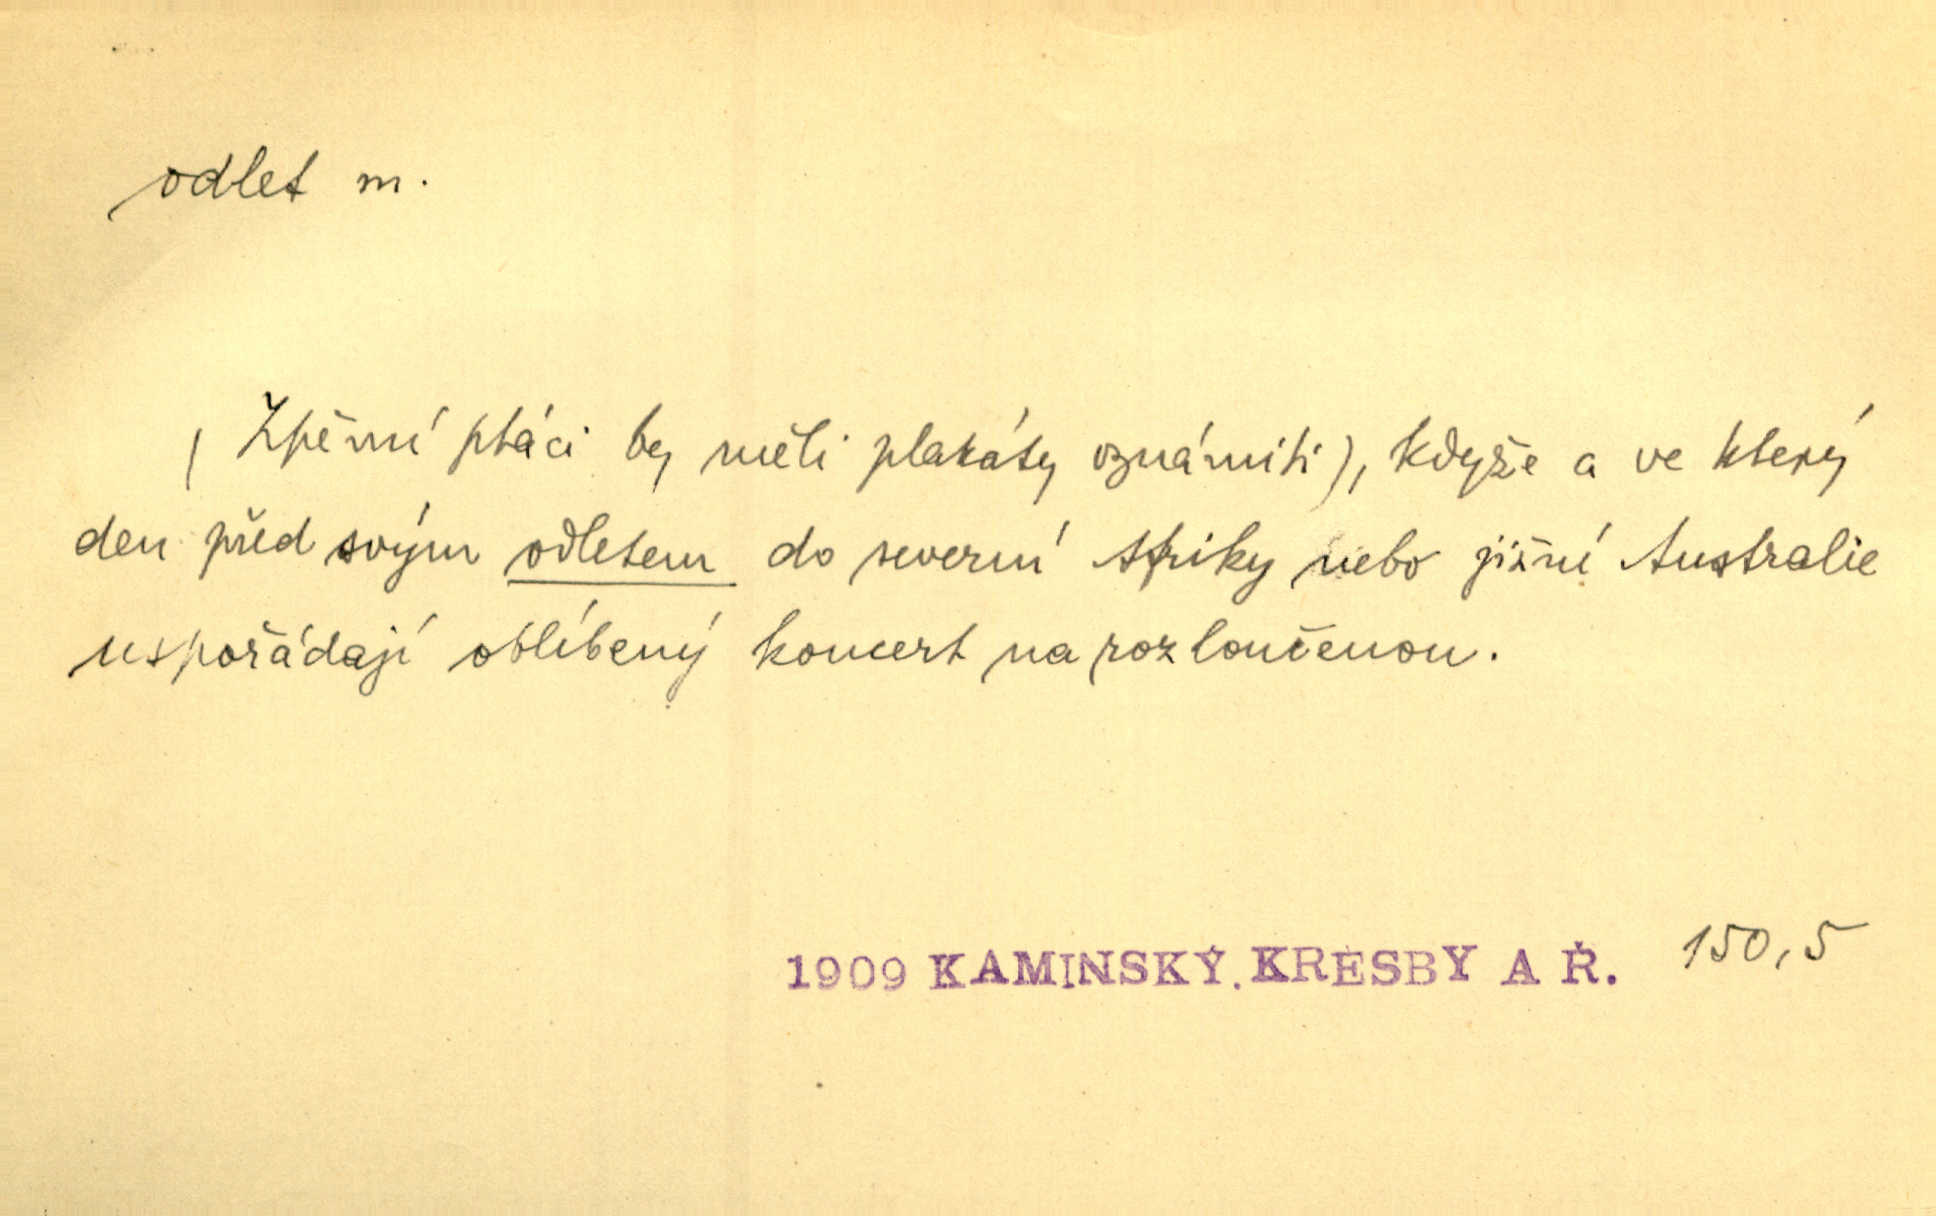 odlet m.
(Zpěvní ptáci by měli plakáty oznámiti), kdyže a ve který
den před svým odletem do severní Afriky nebo jižní Australie
uspořádají oblíbený koncert na rozloučenou.
1909 KAMINSKÝ. KRESBY A Ř. 150,5